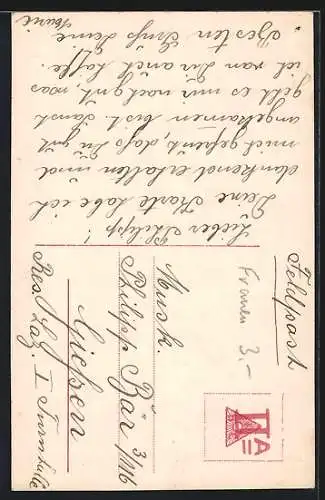 Feldpost
Frauen 3.-
A
Musk.
Philipp Bär 3/116
Gießen
Res. Laz. I Turnhalle
Lieber Philipp!
Deine Karte habe ich
dankend erhalten und
mich gefreut, dass Du gut
angekommen bist. Sonst
geht es mir noch gut, was
ich von Dir auch hoffe.
Besten Gruß Deine